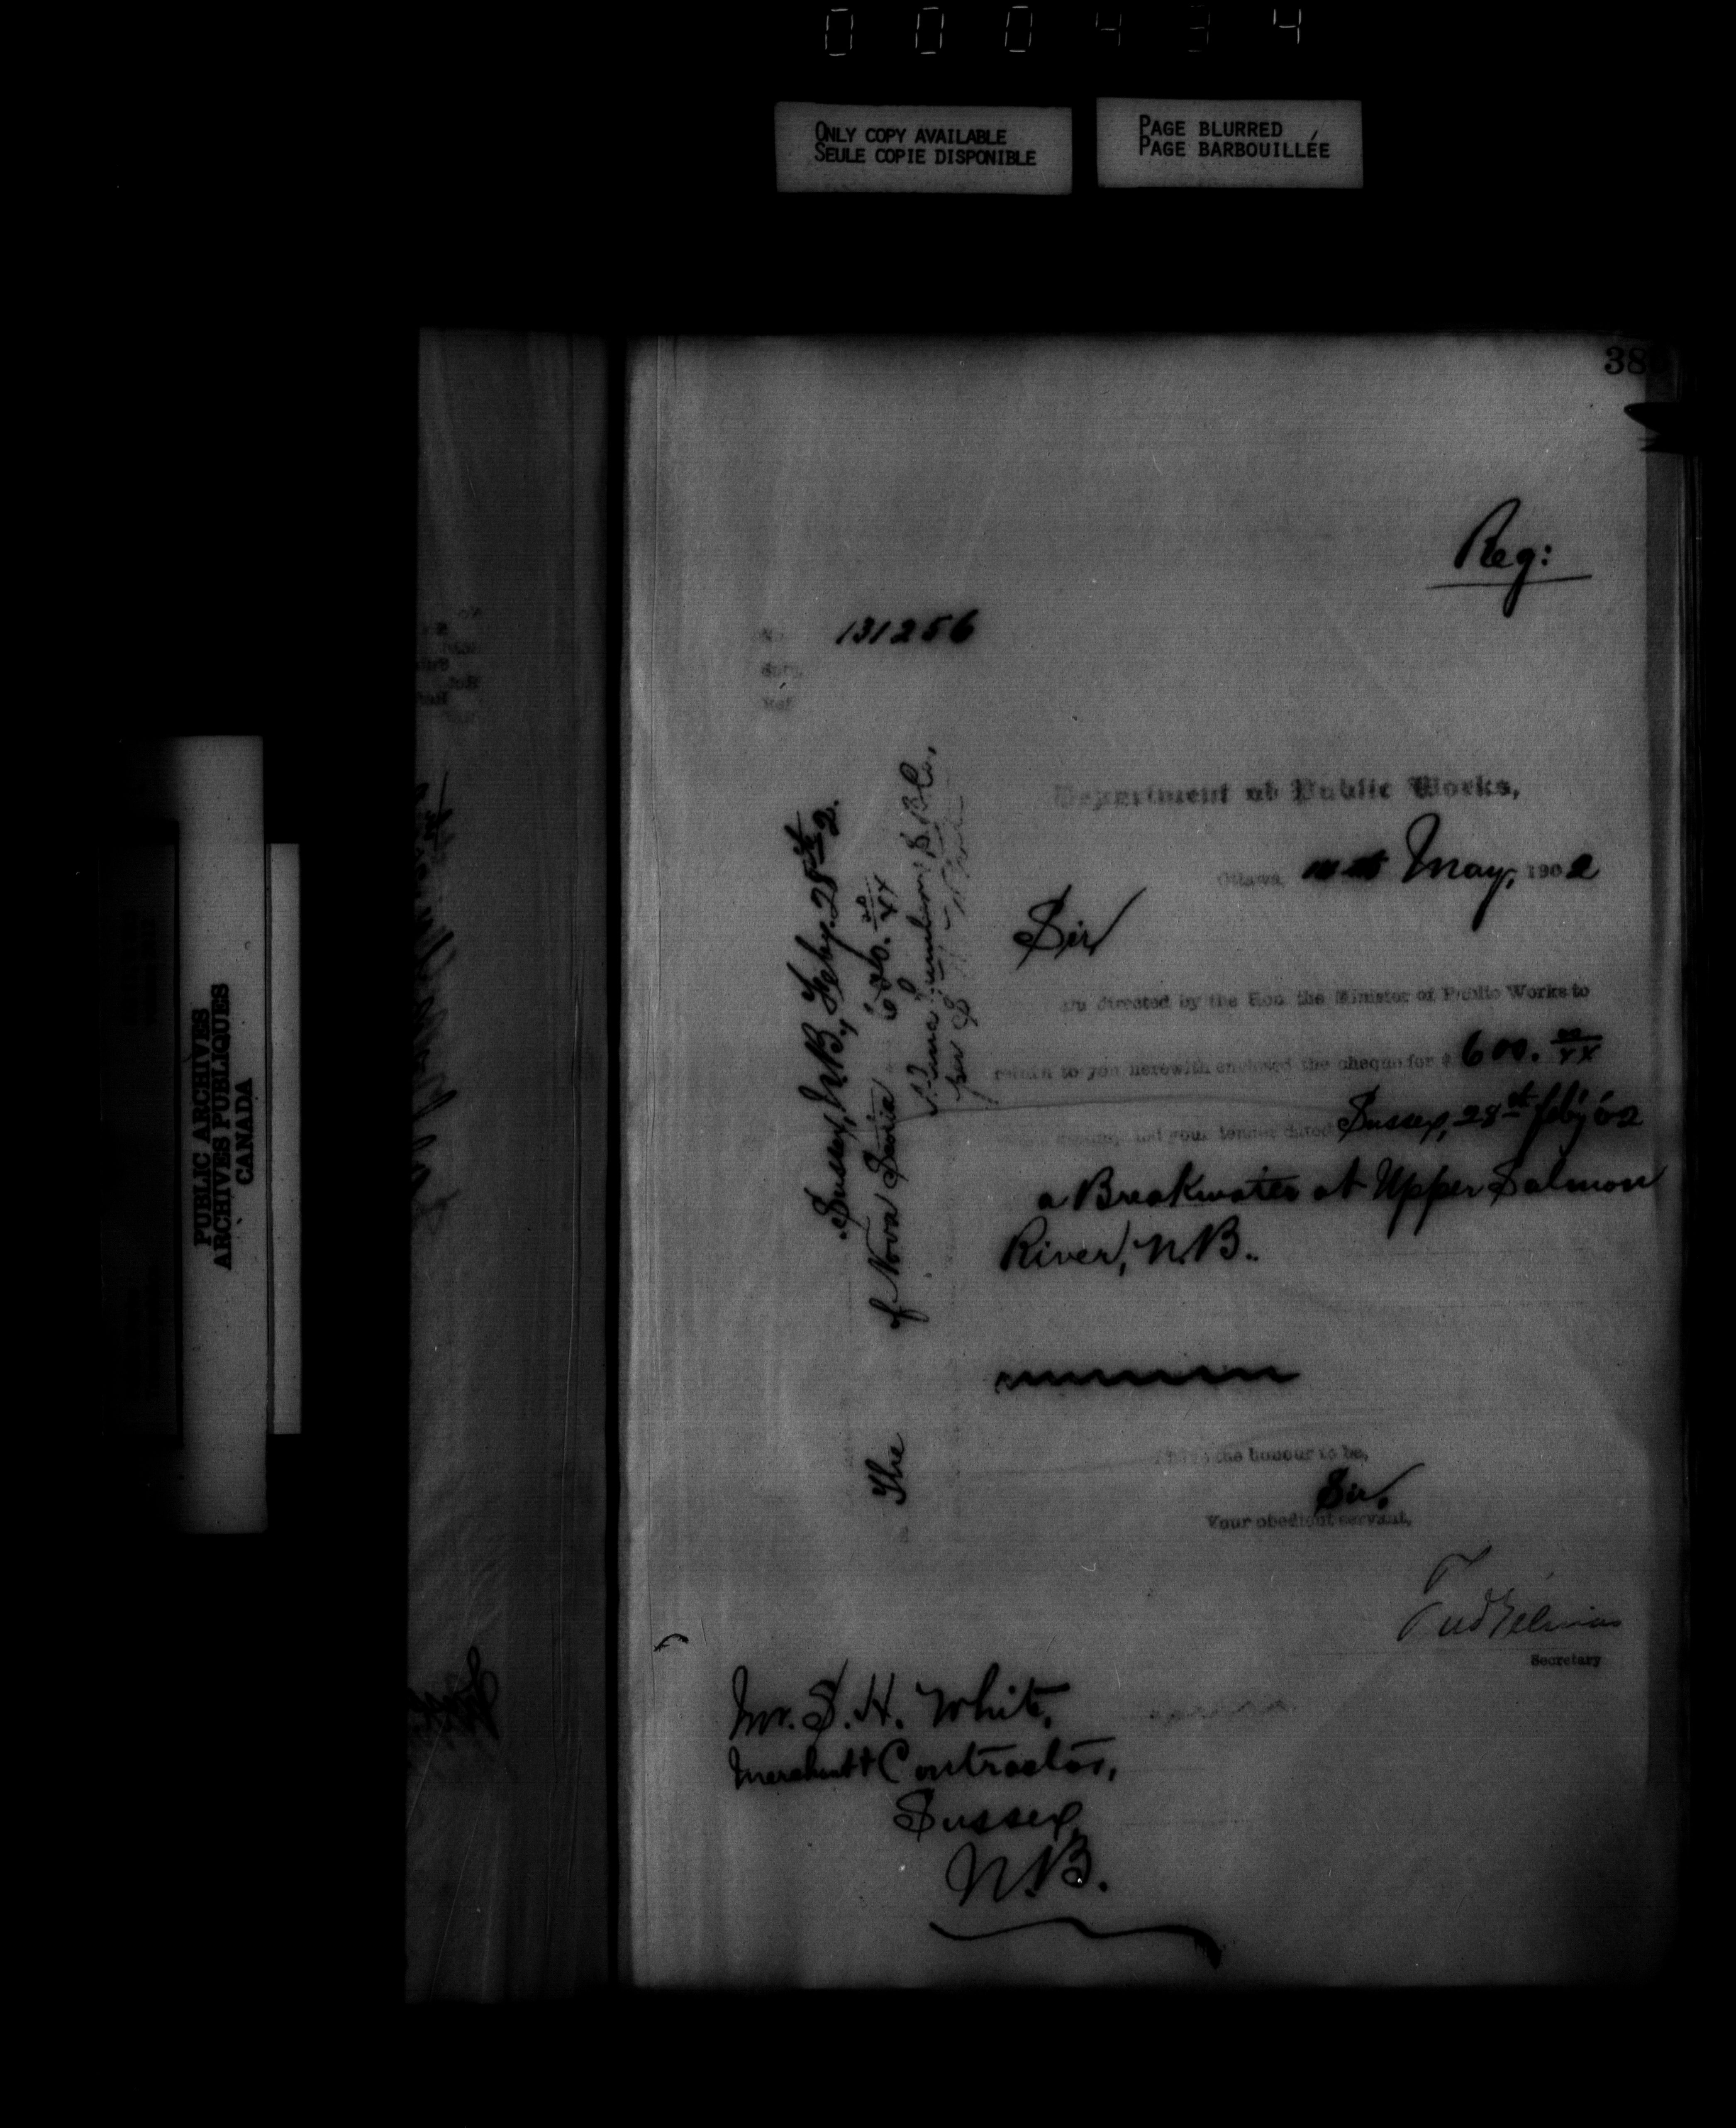 000434
ONLY COPY AVAILABLE
SEULE COPIE DISPONIBLE
PAGE BLURRED
PAGE BARBOUILLÉE
PUBLIC ARCHIVES
ARCHIVES PUBLIQUES
CANADA
38
Reg:
No 131256
Subj.
Ref.
Department of Public Works,
Ottawa, May, 1902
Sir
directed by the Hon. the Minister of Public Works to
return to you herewith enclosed the cheque for $ 600. 00/xx
your tender dated Sussex, 28th feby '02
a Breakwater at Upper Salmon
River, N.B.
Sussex, N.B., Feby. 28th 2.
The of Nova Scotia 600. 00/xx
per
I have the honour to be,
Sir,
Your obedient servant,
Secretary
Mr. S. H. White,
Merchant & Contractor,
Sussex,
N.B.